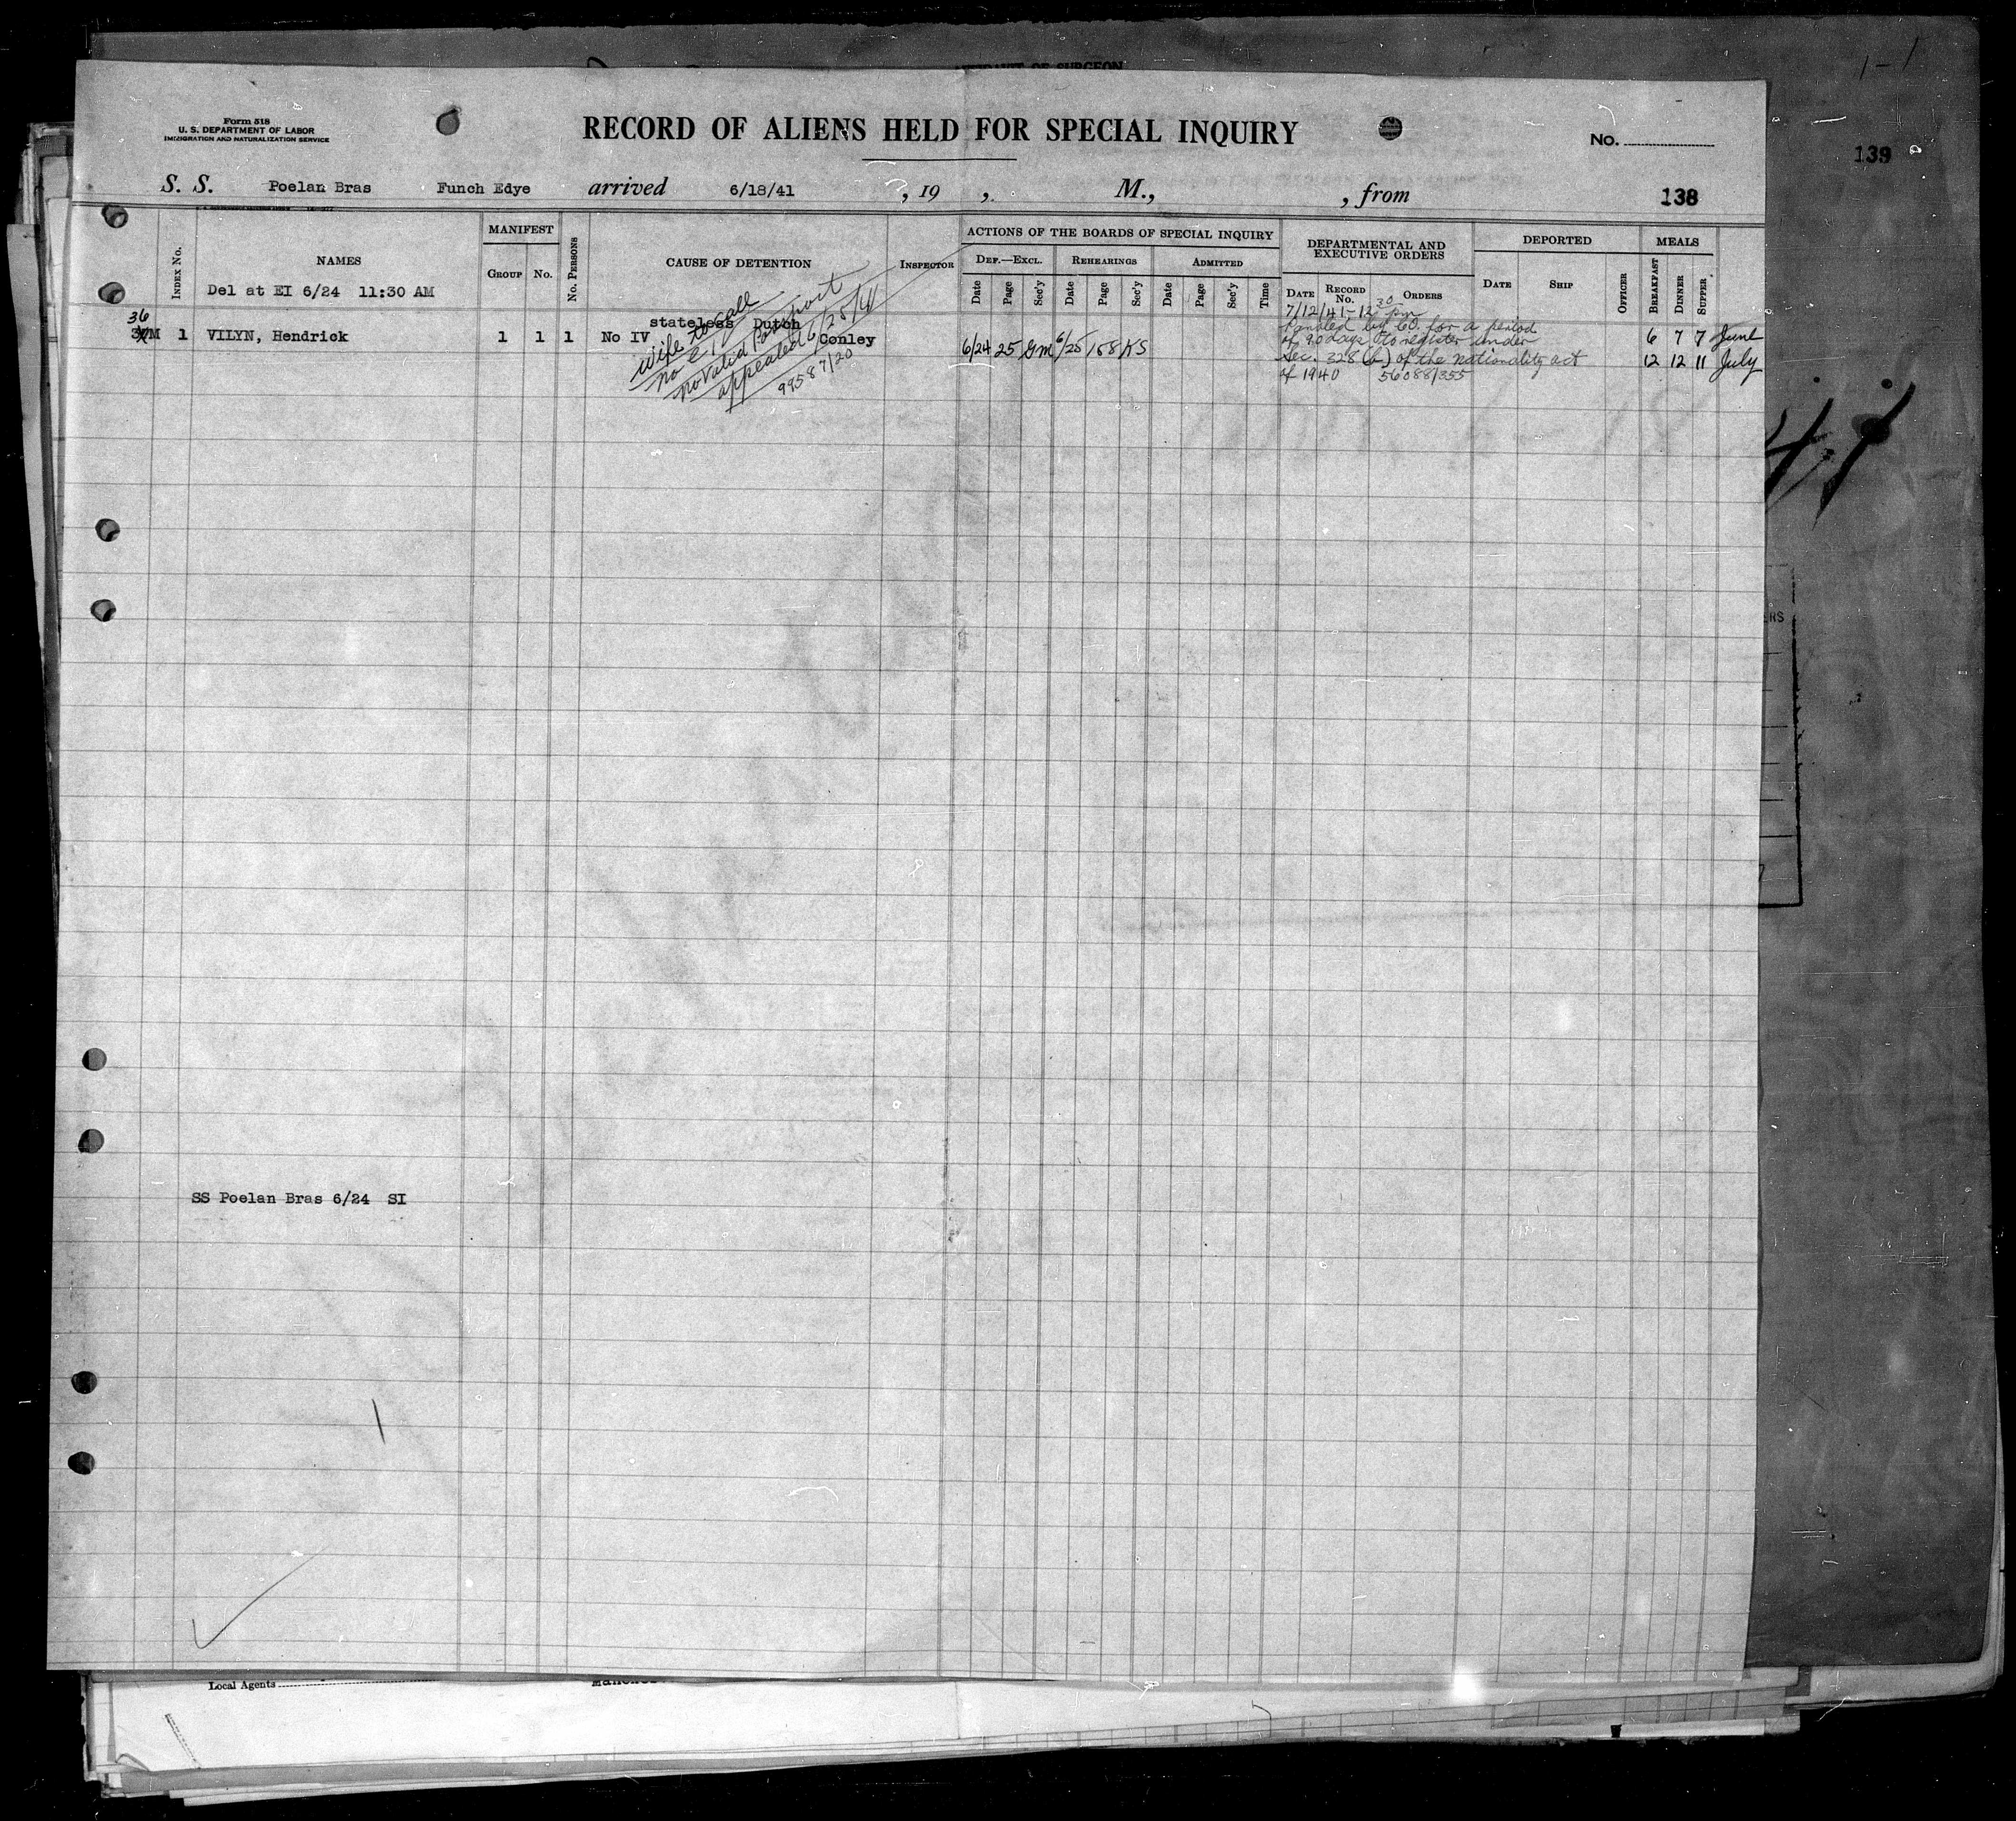 OF SURGEON
1-1
139
Form 518
U. S. DEPARTMENT OF LABOR
IMMIGRATION AND NATURALIZATION SERVICE
RECORD OF ALIENS HELD FOR SPECIAL INQUIRY
No.
S. S. Poelan Bras Funch Edye arrived 6/18/41 , 19 , M., , from 138
INDEX No.
NAMES
MANIFEST
GROUP No.
No. PERSONS
CAUSE OF DETENTION
INSPECTOR
ACTIONS OF THE BOARDS OF SPECIAL INQUIRY
DEF.—EXCL. REHEARINGS ADMITTED
Date Page Sec'y Date Page Sec'y Date Page Sec'y Time
DEPARTMENTAL AND
EXECUTIVE ORDERS
DATE RECORD No. ORDERS
DEPORTED
DATE SHIP OFFICER
MEALS
BREAKFAST DINNER SUPPER
Del at EI 6/24 11:30 AM
36
M 1 VILYN, Hendrick 1 1 1 No IV
stateless Dutch
Conley
wife to call
no e.i.
no valid Passport
appealed 6/25/41
99587/20
6/24 25 GM 6/25 158 KS
7/12/41-12 30 pm
by CO. for a period
of 90 days to register under
Sec. 328 (b) of the nationality act
of 1940 56088/355
6 7 7 June
12 12 11 July
41
ERS
SS Poelan Bras 6/24 SI
Local Agents